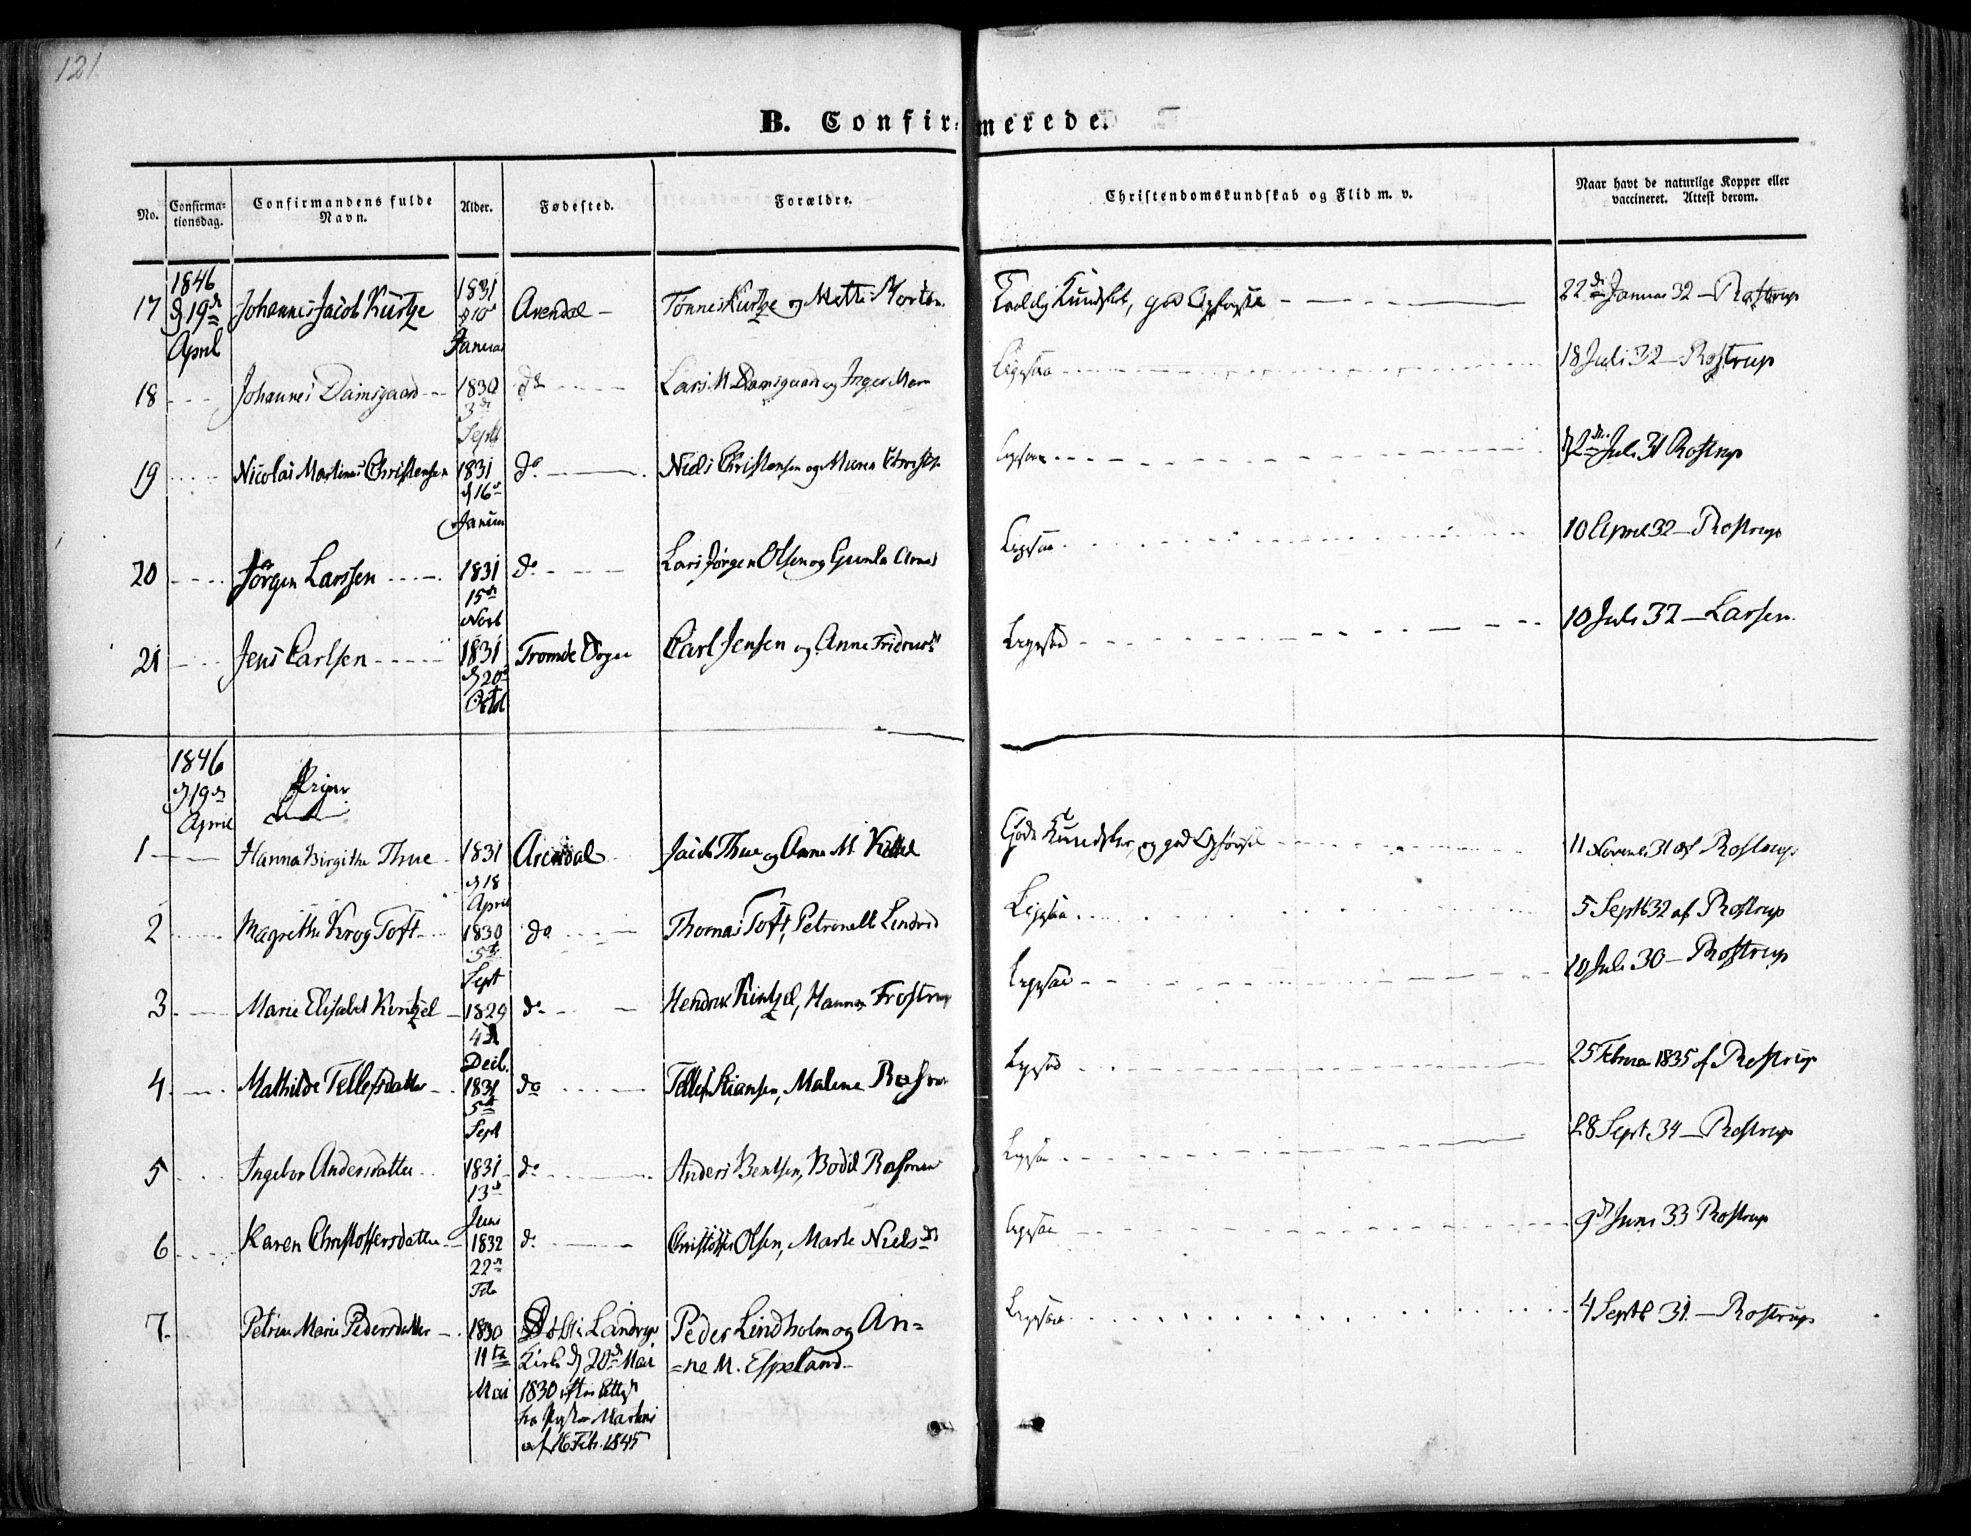 121
B. Confirmerede.
No. Confirmationsdag. Confirmandens fulde Navn. Alder. Fødested. Forældre. Christendomskundskab og Flid m. v. Naar havt de naturlige Kopper eller vaccineret. Attest derom.
1846
17 d 19de April Johannes Jacob Kurtze 1831 d 10de Januar Arendal Tønnes Kurtze og Mette Morten Kundskab, god 22de Januar 32 – Rostrup
18 Johannes Damsgaard 1830 3de Septb do Lars M. Damsgaard og Inger Marie Ligesaa 18 Juli 32 – Rostrup
19 Nicolai Martinus Christensen 1831 d 16de Januar do Niels Christensen og Maren Christ Ligesaa d 2den Juli 31 Rostrup
20 Jørgen Larssen 1831 15de Novb do Lars Jørgen Olsen og Gunla Ligesaa 10 April 32 – Rostrup
21 Jens Carlsen 1831 d 20de Octb Tromøe Sogn Carl Jensen og Anne Ligesaa 10 Juli 32 – Larsen
1846
d 19de April Piger
1 Hanna Birgithe Thue 1831 d 18 April Arendal Jacob Thue og Anne M. Kittel Gode Kundskaber, og god Opførsel 11 Novemb 31 af Rostrup
2 Magrethe Krog Toft 1830 5te Sept do Thomas Toft, Petronelle Ligesaa 5 Septb 32 af Rostrup
3 Marie Elisabet Kintzel 1829 4de Decb. do Hendrik Kintzel, Hanna Frostrup Ligesaa 10 Juli 30 – Rostrup
4 Mathilde Tellefsdatter 1831 5te Sept do Tellef Stiansen, Malene Ligesaa 25 Februar 1835 af Rostrup
5 Ingebor Andersdatter 1831 13de Juni do Anders Bentsen, Bodil Ligesaa 28 Sept 34 – Rostrup
6 Karen Christoffersdatter 1832 22de Feb do Christoffer Olsen, Marte Nielsdr Ligesaa 9de Juni 33 Rostrup
7 Petrine Marie Pedersdatter 1830 11te Mai Døbt i Landvigs Kirke d 20de Mai 1830 efter Attest fra af 16 Feb. 1845 Peder Lindholm og An=
=ne M. Espeland Ligesaa 4 Septb 31 – Rostrup